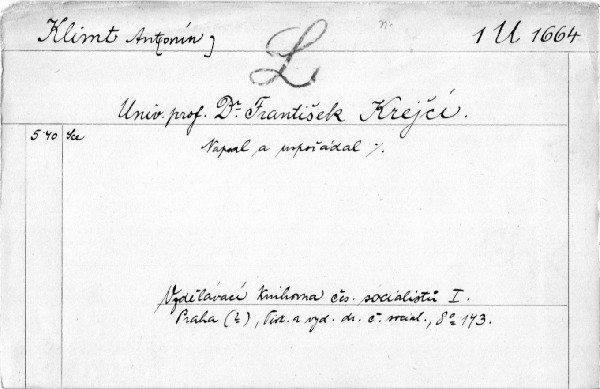 Klimt Antonín] 1 U 1664
L
Univ. prof. Dr. František Krejčí.
5·40 Sce
Napsal a uspořádal /.
Vzdělávací knihovna čes. socialistů I.
Praha (?), Tisk. a vyd. dr. č. social., 8° 143.